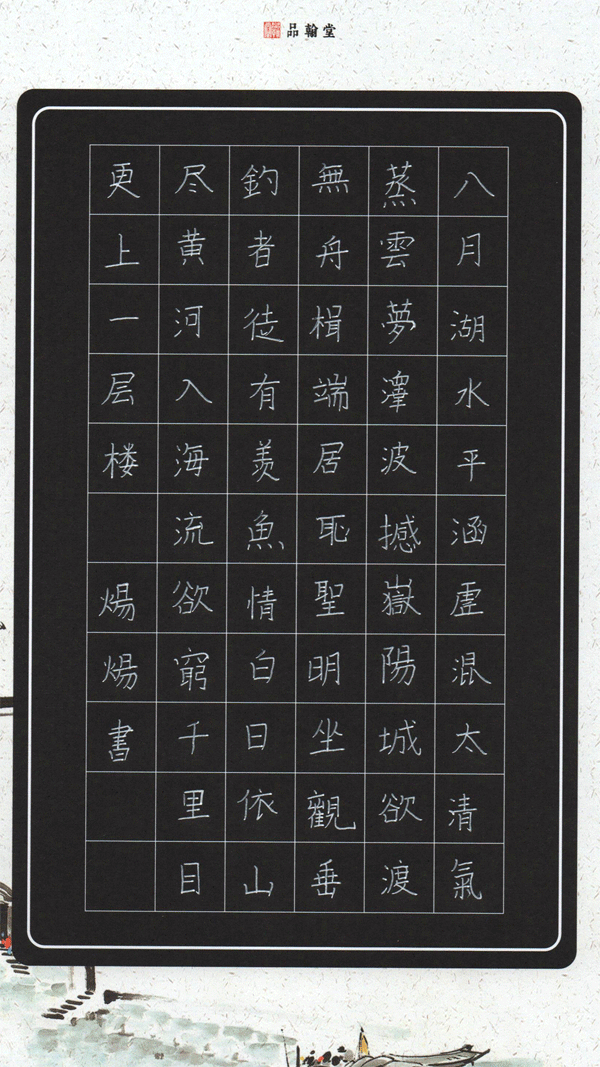 品翰堂
八月湖水平涵虛混太清氣
蒸雲夢澤波撼嶽陽城欲渡
無舟楫端居恥聖明坐觀垂
釣者徒有羨魚情白日依山
尽黄河入海流欲窮千里目
更上一层楼 炀炀書